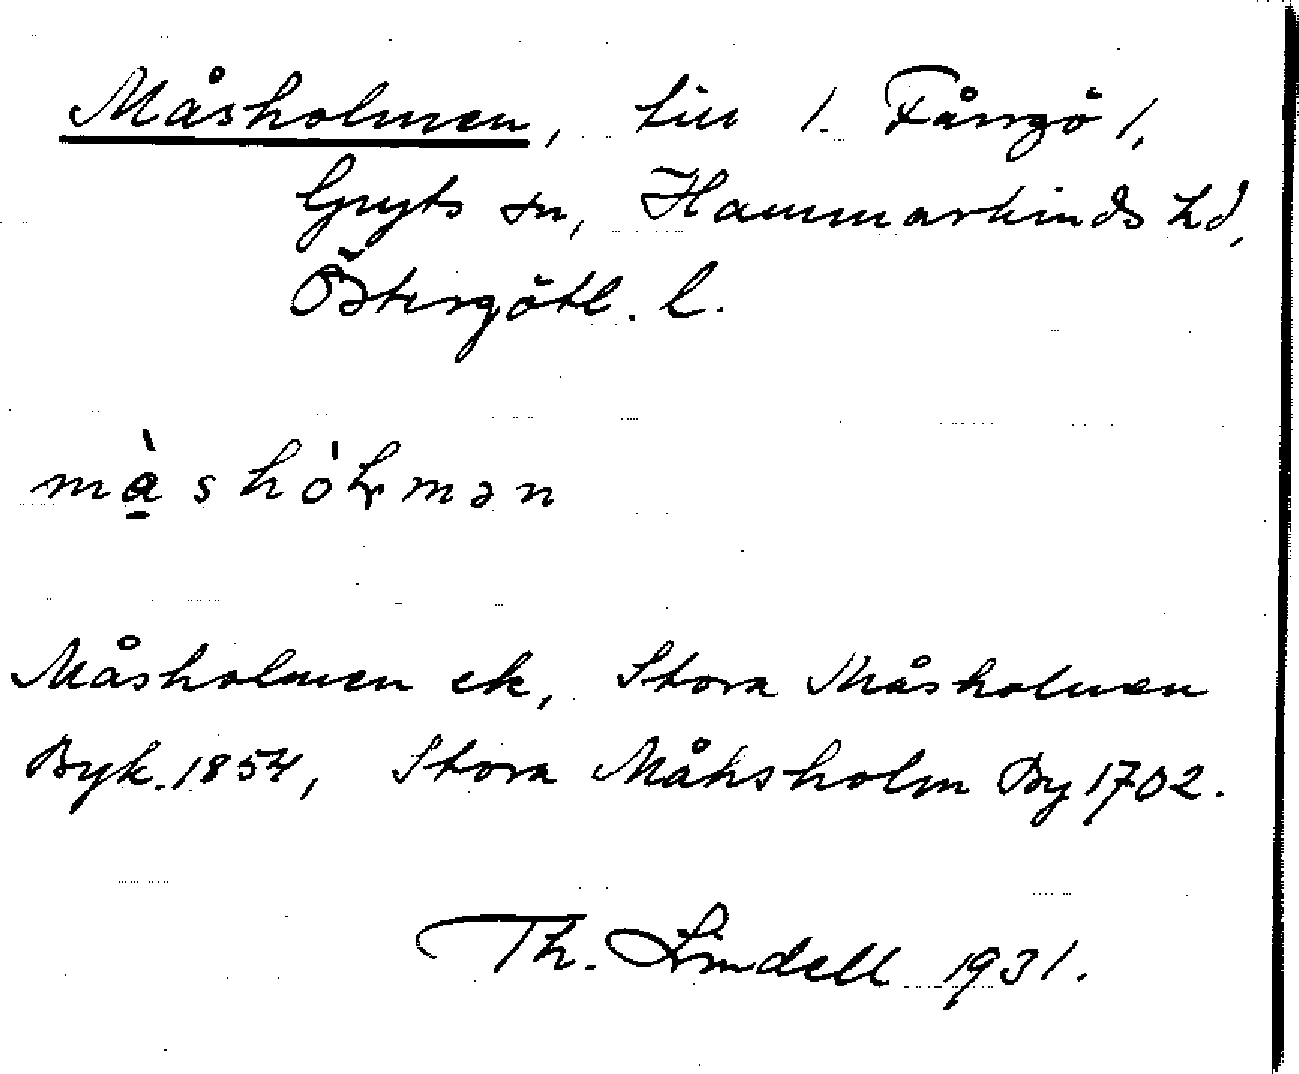 Måsholmen, till 1. Fångö 1,
Gryts sn, Hammarkinds hd,
Östergötl. l.
màshòlmən
Måsholmen ek, Stora Måsholmen
Byk. 1854, Stora Måhsholm By 1702.
Th. Lindell 1931.